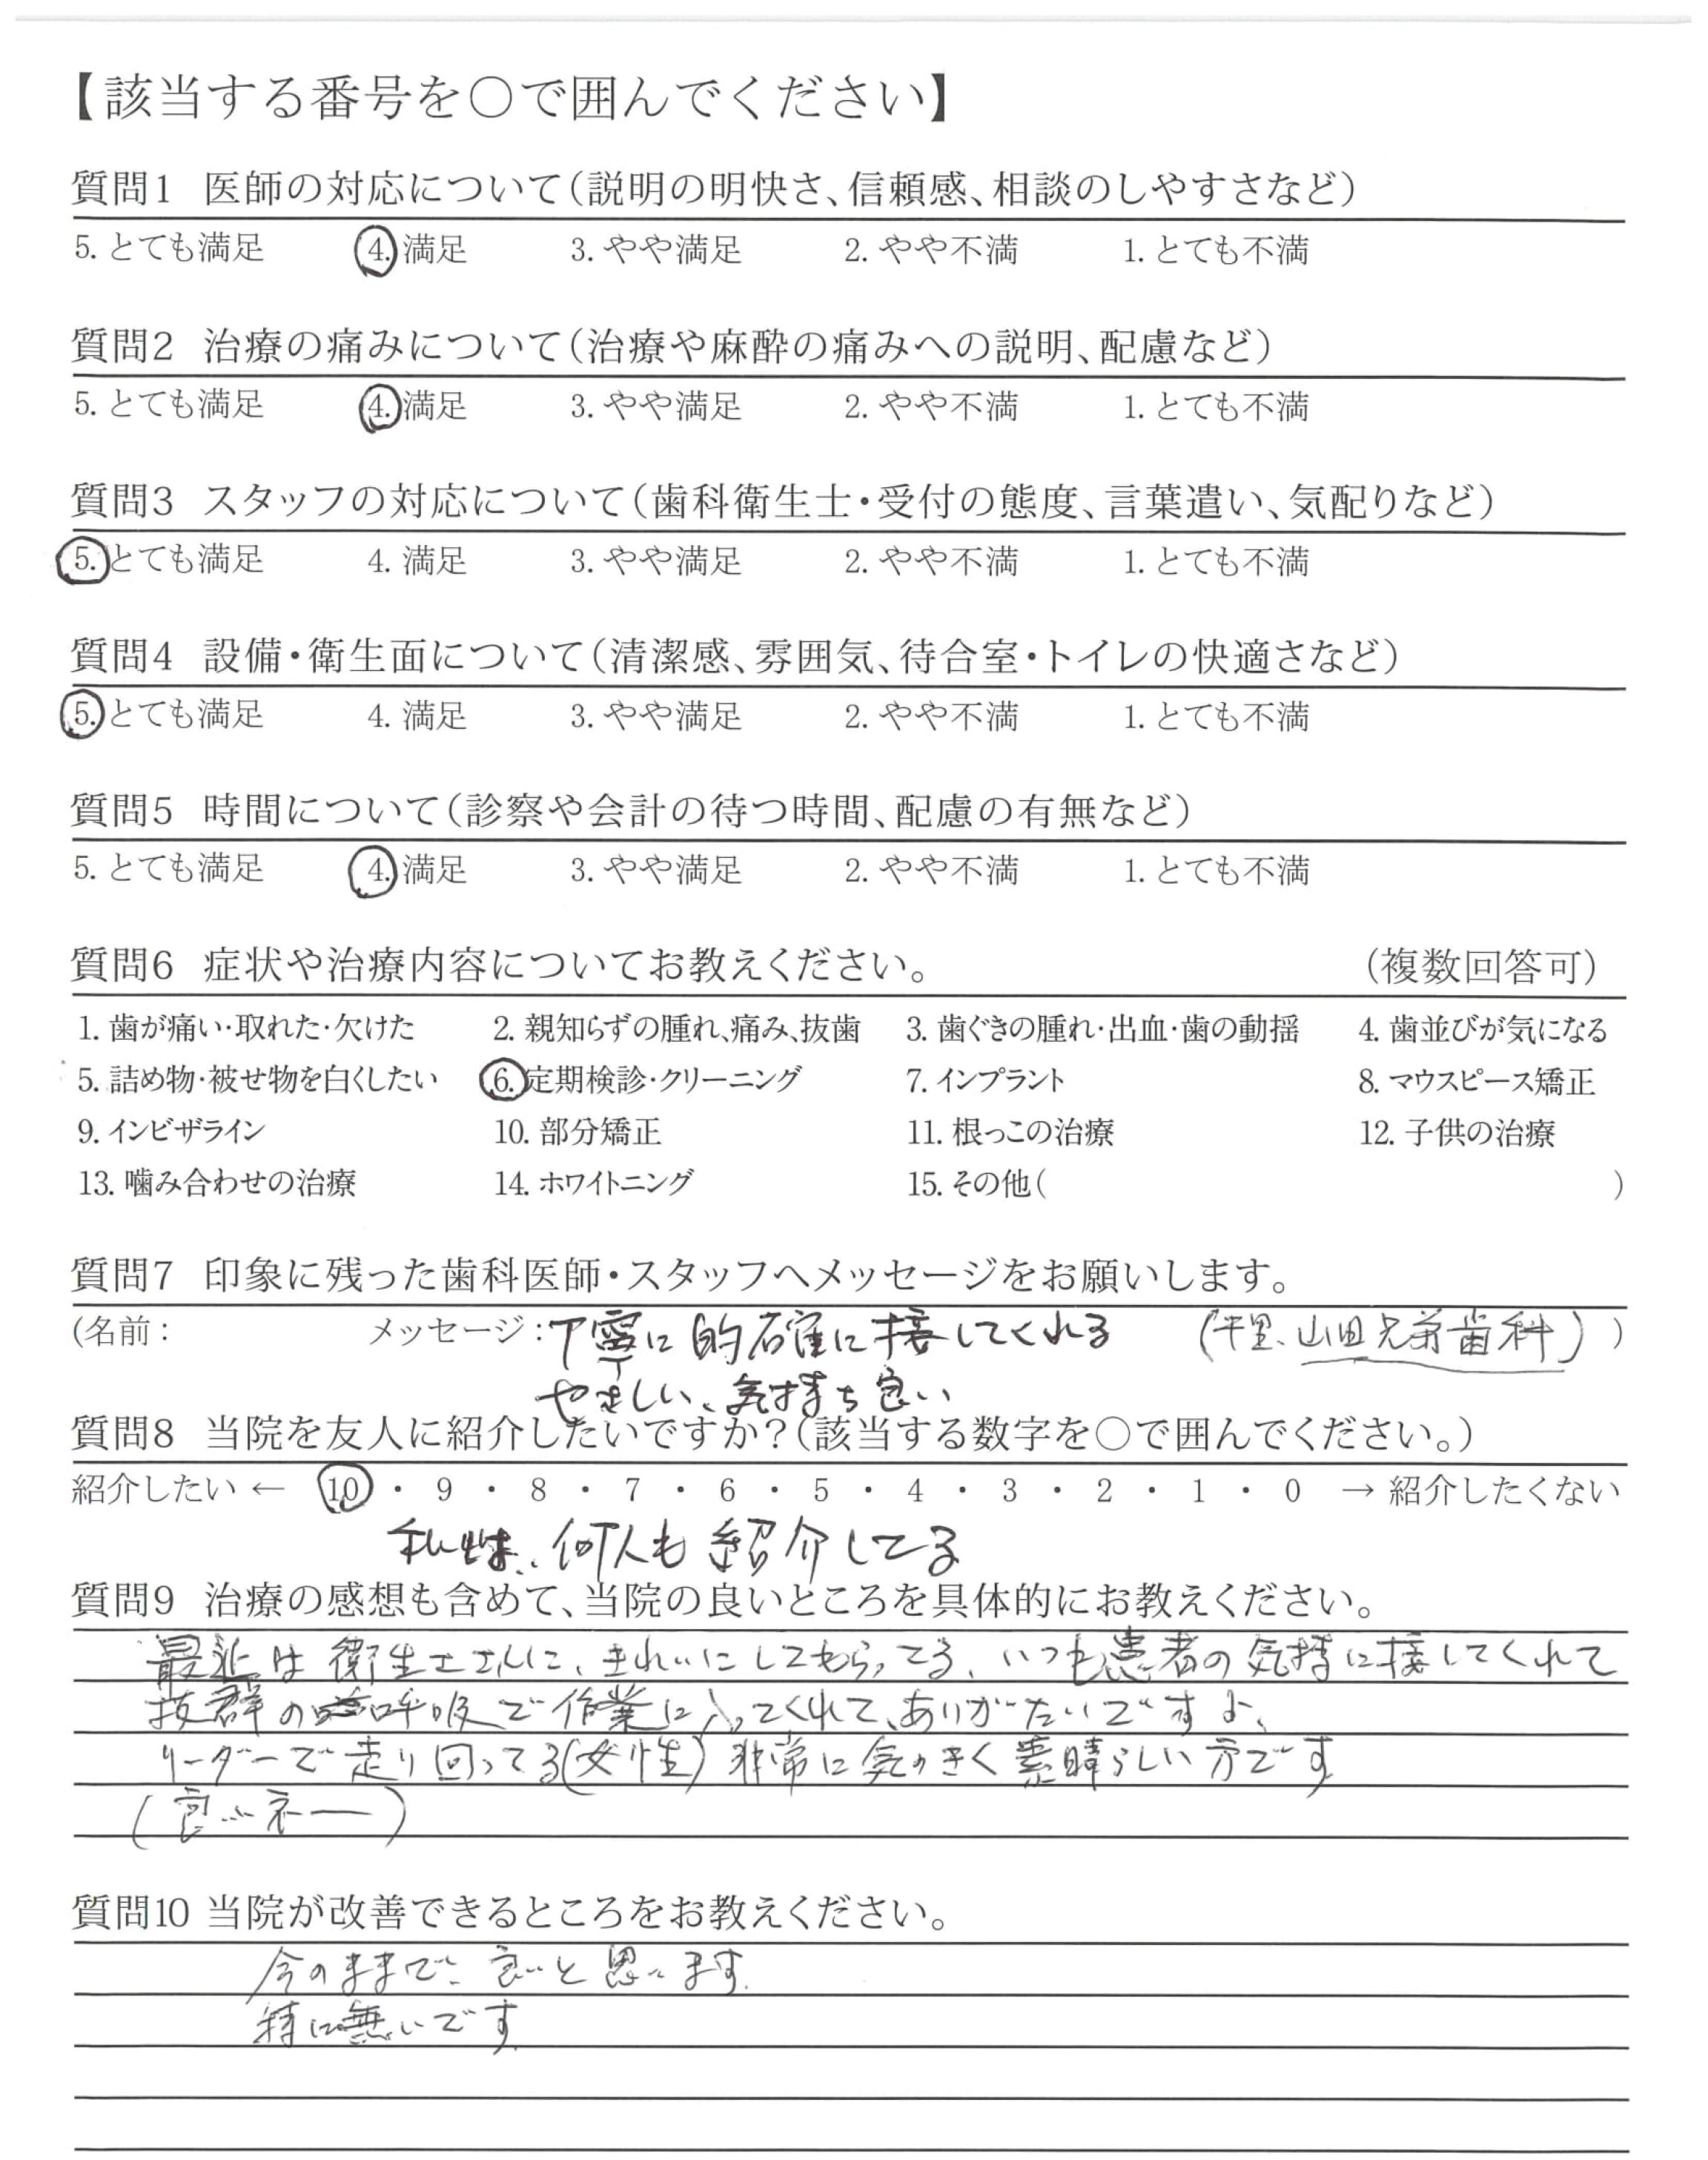 【該当する番号を○で囲んでください】
質問1 医師の対応について(説明の明快さ、信頼感、相談のしやすさなど)
5. とても満足 4. 満足 3. やや満足 2. やや不満 1. とても不満
質問2 治療の痛みについて(治療や麻酔の痛みへの説明、配慮など)
5. とても満足 4. 満足 3. やや満足 2. やや不満 1. とても不満
質問3 スタッフの対応について(歯科衛生士・受付の態度、言葉遣い、気配りなど)
5. とても満足 4. 満足 3. やや満足 2. やや不満 1. とても不満
質問4 設備・衛生面について(清潔感、雰囲気、待合室・トイレの快適さなど)
5. とても満足 4. 満足 3. やや満足 2. やや不満 1. とても不満
質問5 時間について(診察や会計の待つ時間、配慮の有無など)
5. とても満足 4. 満足 3. やや満足 2. やや不満 1. とても不満
質問6 症状や治療内容についてお教えください。 (複数回答可)
1. 歯が痛い・取れた・欠けた 2. 親知らずの腫れ、痛み、抜歯 3. 歯ぐきの腫れ・出血・歯の動揺 4. 歯並びが気になる
5. 詰め物・被せ物を白くしたい 6. 定期検診・クリーニング 7. インプラント 8. マウスピース矯正
9. インビザライン 10. 部分矯正 11. 根っこの治療 12. 子供の治療
13. 噛み合わせの治療 14. ホワイトニング 15. その他( )
質問7 印象に残った歯科医師・スタッフへメッセージをお願いします。
(名前: メッセージ:丁寧に的確に接してくれる (千里、山田兄弟歯科) )
やさしい、気持ち良い
質問8 当院を友人に紹介したいですか?(該当する数字を○で囲んでください。)
紹介したい ← 10 ・ 9 ・ 8 ・ 7 ・ 6 ・ 5 ・ 4 ・ 3 ・ 2 ・ 1 ・ 0 → 紹介したくない
私は、何人も紹介してる
質問9 治療の感想も含めて、当院の良いところを具体的にお教えください。
最近は衛生士さんに、きれいにしてもらってる、いつも患者の気持に接してくれて
抜群の呼吸で作業に入ってくれて、ありがたいですよ、
リーダーで走り回ってる(女性)非常に気のきく素晴らしい方です
(良いネー)
質問10 当院が改善できるところをお教えください。
今のままで、良いと思います
特に無いです